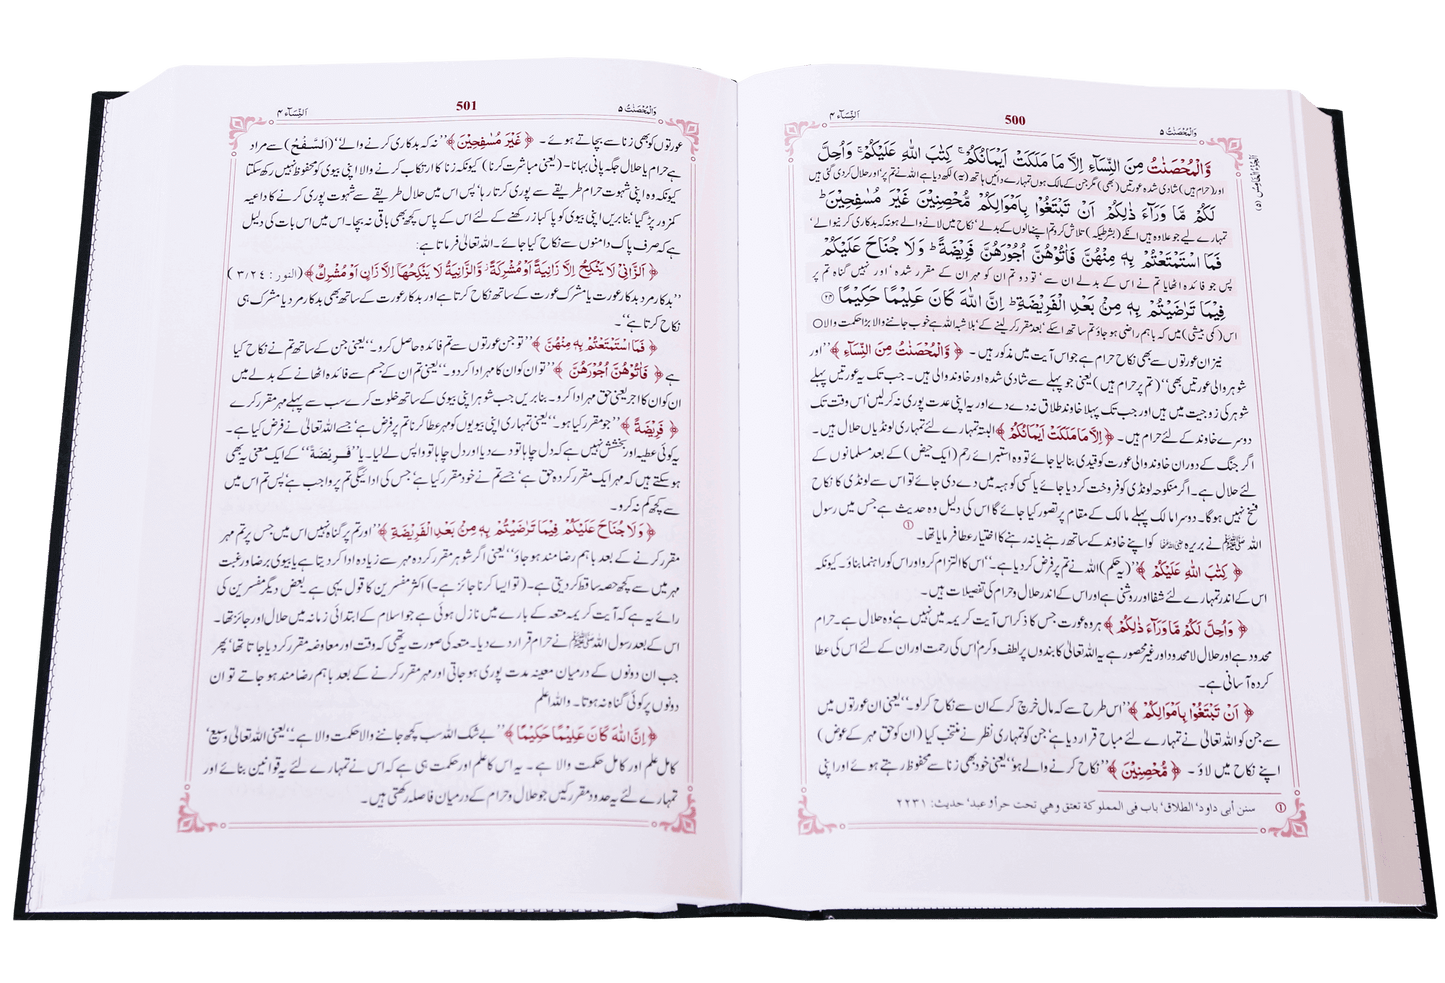 وَالْمُحْصَنٰتُ ۵
500
اَلنِّسَآء ۴
وَّالْمُحْصَنٰتُ مِنَ النِّسَآءِ اِلَّا مَا مَلَكَتْ اَيْمَانُكُمْ ۚ كِتٰبَ اللّٰهِ عَلَيْكُمْ ۚ وَاُحِلَّ
اور (حرام ہیں) شادی شدہ عورتیں (بھی) مگر جن کے مالک ہوں تمہارے دائیں ہاتھ (یہ) لکھ دیا ہے اللہ نے تم پر اور حلال کر دی گئی ہیں
لَكُمْ مَّا وَرَآءَ ذٰلِكُمْ اَنْ تَبْتَغُوْا بِاَمْوَالِكُمْ مُّحْصِنِيْنَ غَيْرَ مُسٰفِحِيْنَ ؕ
تمہارے لیے جو علاوہ ہیں انکے (بشرطیکہ) تلاش کرو تم اپنے مالوں کے بدلے' نکاح میں لانے والے ہو نہ کہ بدکاری کرنیوالے'
فَمَا اسْتَمْتَعْتُمْ بِهٖ مِنْهُنَّ فَاٰتُوْهُنَّ اُجُوْرَهُنَّ فَرِيْضَةً ؕ وَلَا جُنَاحَ عَلَيْكُمْ
پس جو فائدہ اٹھایا تم نے اس کے بدلے ان سے' تو دو تم ان کو مہر ان کے مقرر شدہ' اور نہیں گناہ تم پر
فِيْمَا تَرٰضَيْتُمْ بِهٖ مِنْۢ بَعْدِ الْفَرِيْضَةِ ؕ اِنَّ اللّٰهَ كَانَ عَلِيْمًا حَكِيْمًا ۲۴
اس (کمی بیشی) میں کہ باہم راضی ہو جاؤ تم ساتھ اسکے' بعد مقرر کر لینے کے' بلاشبہ اللہ ہے خوب جاننے والا بڑا حکمت والا○
نیز ان عورتوں سے بھی نکاح حرام ہے جو اس آیت میں مذکور ہیں۔ ﴿ وَّالْمُحْصَنٰتُ مِنَ النِّسَآءِ ﴾ ''اور
شوہر والی عورتیں بھی'' (تم پر حرام ہیں) یعنی جو پہلے سے شادی شدہ اور خاوند والی ہیں۔ جب تک یہ عورتیں پہلے
شوہر کی زوجیت میں ہیں اور جب تک پہلا خاوند طلاق نہ دے دے اور یہ اپنی عدت پوری نہ کر لیں' اس وقت تک
دوسرے خاوند کے لئے حرام ہیں۔ ﴿ اِلَّا مَا مَلَكَتْ اَيْمَانُكُمْ ﴾ البتہ تمہارے لئے تمہاری لونڈیاں حلال ہیں۔
اگر جنگ کے دوران خاوند والی عورت کو قیدی بنا لیا جائے تو وہ استبرائے رحم (ایک حیض) کے بعد مسلمانوں کے
لئے حلال ہے۔ اگر منکوحہ لونڈی کو فروخت کر دیا جائے یا کسی کو ہبہ میں دے دی جائے تو اس سے لونڈی کا نکاح
فسخ نہیں ہوگا۔ دوسرا مالک پہلے مالک کے مقام پر تصور کیا جائے گا اس کی دلیل وہ حدیث ہے جس میں رسول
اللہ ﷺ نے بریرہ رضی اللہ عنہا کو اپنے خاوند کے ساتھ رہنے یا نہ رہنے کا اختیار عطا فرمایا تھا۔ ①
﴿ كِتٰبَ اللّٰهِ عَلَيْكُمْ ﴾ ''(یہ حکم) اللہ نے تم پر فرض کر دیا ہے۔'' اس کا التزام کرو اور اس کو راہنما بناؤ۔ کیونکہ
اس کے اندر تمہارے لئے شفا اور روشنی ہے اور اس کے اندر حلال و حرام کی تفصیلات ہیں۔
﴿ وَاُحِلَّ لَكُمْ مَّا وَرَآءَ ذٰلِكُمْ ﴾ ہر وہ عورت جس کا ذکر اس آیت کریمہ میں نہیں ہے' وہ حلال ہے۔ حرام
محدود ہے اور حلال لامحدود اور غیر محصور ہے یہ اللہ تعالیٰ کا بندوں پر لطف و کرم' اس کی رحمت اور ان کے لئے اس کی عطا
کردہ آسانی ہے۔
﴿ اَنْ تَبْتَغُوْا بِاَمْوَالِكُمْ ﴾ ''اس طرح سے کہ مال خرچ کر کے ان سے نکاح کر لو۔'' یعنی ان عورتوں میں
سے جن کو اللہ تعالیٰ نے تمہارے لئے مباح قرار دیا ہے' جن کو تمہاری نظر نے منتخب کیا (ان کو حق مہر کے عوض)
اپنے نکاح میں لاؤ۔ ﴿ مُّحْصِنِيْنَ ﴾ ''نکاح کرنے والے ہو'' یعنی خود بھی زنا سے محفوظ رہتے ہوئے اور اپنی
① سنن أبی داود' الطلاق' باب فی المملوكة تعتق وهي تحت حر أو عبد' حدیث: ۲۲۳۱
وَالْمُحْصَنٰتُ ۵
501
اَلنِّسَآء ۴
عورتوں کو بھی زنا سے بچاتے ہوئے۔ ﴿ غَيْرَ مُسٰفِحِيْنَ ﴾ ''نہ کہ بدکاری کرنے والے'' (اَلسَّفْحُ) سے مراد
ہے حرام یا حلال جگہ پانی بہانا۔ (یعنی مباشرت کرنا) کیونکہ زنا کا ارتکاب کرنے والا اپنی بیوی کو محفوظ نہیں رکھ سکتا
کیونکہ وہ اپنی شہوت حرام طریقے سے پوری کرتا رہا' پس اس میں حلال طریقے سے شہوت پوری کرنے کا داعیہ
کمزور پڑ گیا' بنابریں اپنی بیوی کو پاکباز رکھنے کے لئے اس کے پاس کچھ بھی باقی نہ بچا۔ اس میں اس بات کی دلیل
ہے کہ صرف پاک دامنوں سے نکاح کیا جائے۔ اللہ تعالیٰ فرماتا ہے:
﴿ اَلزَّانِيْ لَا يَنْكِحُ اِلَّا زَانِيَةً اَوْ مُشْرِكَةً ۡ وَّالزَّانِيَةُ لَا يَنْكِحُهَاۤ اِلَّا زَانٍ اَوْ مُشْرِكٌ ﴾ (النور: ۳/۲۴)
''بدکار مرد بدکار عورت یا مشرک عورت کے ساتھ نکاح کرتا ہے اور بدکار عورت کے ساتھ بھی بدکار مرد یا مشرک ہی
نکاح کرتا ہے''۔
﴿ فَمَا اسْتَمْتَعْتُمْ بِهٖ مِنْهُنَّ ﴾ ''تو جن عورتوں سے تم فائدہ حاصل کرو۔'' یعنی جن کے ساتھ تم نے نکاح کیا
ہے ﴿ فَاٰتُوْهُنَّ اُجُوْرَهُنَّ ﴾ ''تو ان کو ان کا مہر ادا کر دو۔'' یعنی تم ان کے جسم سے فائدہ اٹھانے کے بدلے میں
ان کو ان کا اجر یعنی حق مہر ادا کرو۔ بنابریں جب شوہر اپنی بیوی کے ساتھ خلوت کرے سب سے پہلے مہر مقرر کرے
﴿ فَرِيْضَةً ﴾ ''جو مقرر کیا ہو۔'' یعنی تمہاری اپنی بیویوں کو مہر عطا کرنا تم پر فرض ہے' جسے اللہ تعالیٰ نے فرض کیا ہے۔
یہ کوئی عطیہ اور بخشش نہیں ہے کہ دل چاہا تو دے دیا اور دل چاہا تو واپس لے لیا۔ یا ''فَرِيْضَةً'' کے ایک معنی یہ بھی
ہو سکتے ہیں کہ مہر ایک مقرر کردہ حق ہے' جسے تم نے خود مقرر کیا ہے' جس کی ادائیگی تم پر واجب ہے' پس تم اس میں
سے کچھ کم نہ کرو۔
﴿ وَلَا جُنَاحَ عَلَيْكُمْ فِيْمَا تَرٰضَيْتُمْ بِهٖ مِنْۢ بَعْدِ الْفَرِيْضَةِ ﴾ ''اور تم پر گناہ نہیں اس میں جس پر تم مہر
مقرر کرنے کے بعد باہم رضامند ہو جاؤ'' یعنی اگر شوہر مقرر کردہ مہر سے زیادہ ادا کر دیتا ہے یا بیوی برضا ورغبت
مہر میں سے کچھ حصہ ساقط کر دیتی ہے۔ (تو ایسا کرنا جائز ہے۔) اکثر مفسرین کا قول یہی ہے بعض دیگر مفسرین کی
رائے یہ ہے کہ آیت کریمہ متعہ کے بارے میں نازل ہوئی ہے جو اسلام کے ابتدائی زمانہ میں حلال اور جائز تھا۔
اس کے بعد رسول اللہ ﷺ نے حرام قرار دے دیا۔ متعہ کی صورت یہ تھی کہ وقت اور معاوضہ مقرر کر دیا جاتا تھا' پھر
جب ان دونوں کے درمیان معینہ مدت پوری ہو جاتی اور مہر مقرر کرنے کے بعد باہم رضامند ہو جاتے تو ان
دونوں پر کوئی گناہ نہ ہوتا۔ واللہ اعلم
﴿ اِنَّ اللّٰهَ كَانَ عَلِيْمًا حَكِيْمًا ﴾ ''بے شک اللہ سب کچھ جاننے والا حکمت والا ہے۔'' یعنی اللہ تعالیٰ وسیع'
کامل علم اور کامل حکمت والا ہے۔ یہ اس کا علم اور حکمت ہی ہے کہ اس نے تمہارے لئے یہ قوانین بنائے اور
تمہارے لئے یہ حدود مقرر کیں جو حلال و حرام کے درمیان فاصلہ رکھتی ہیں۔